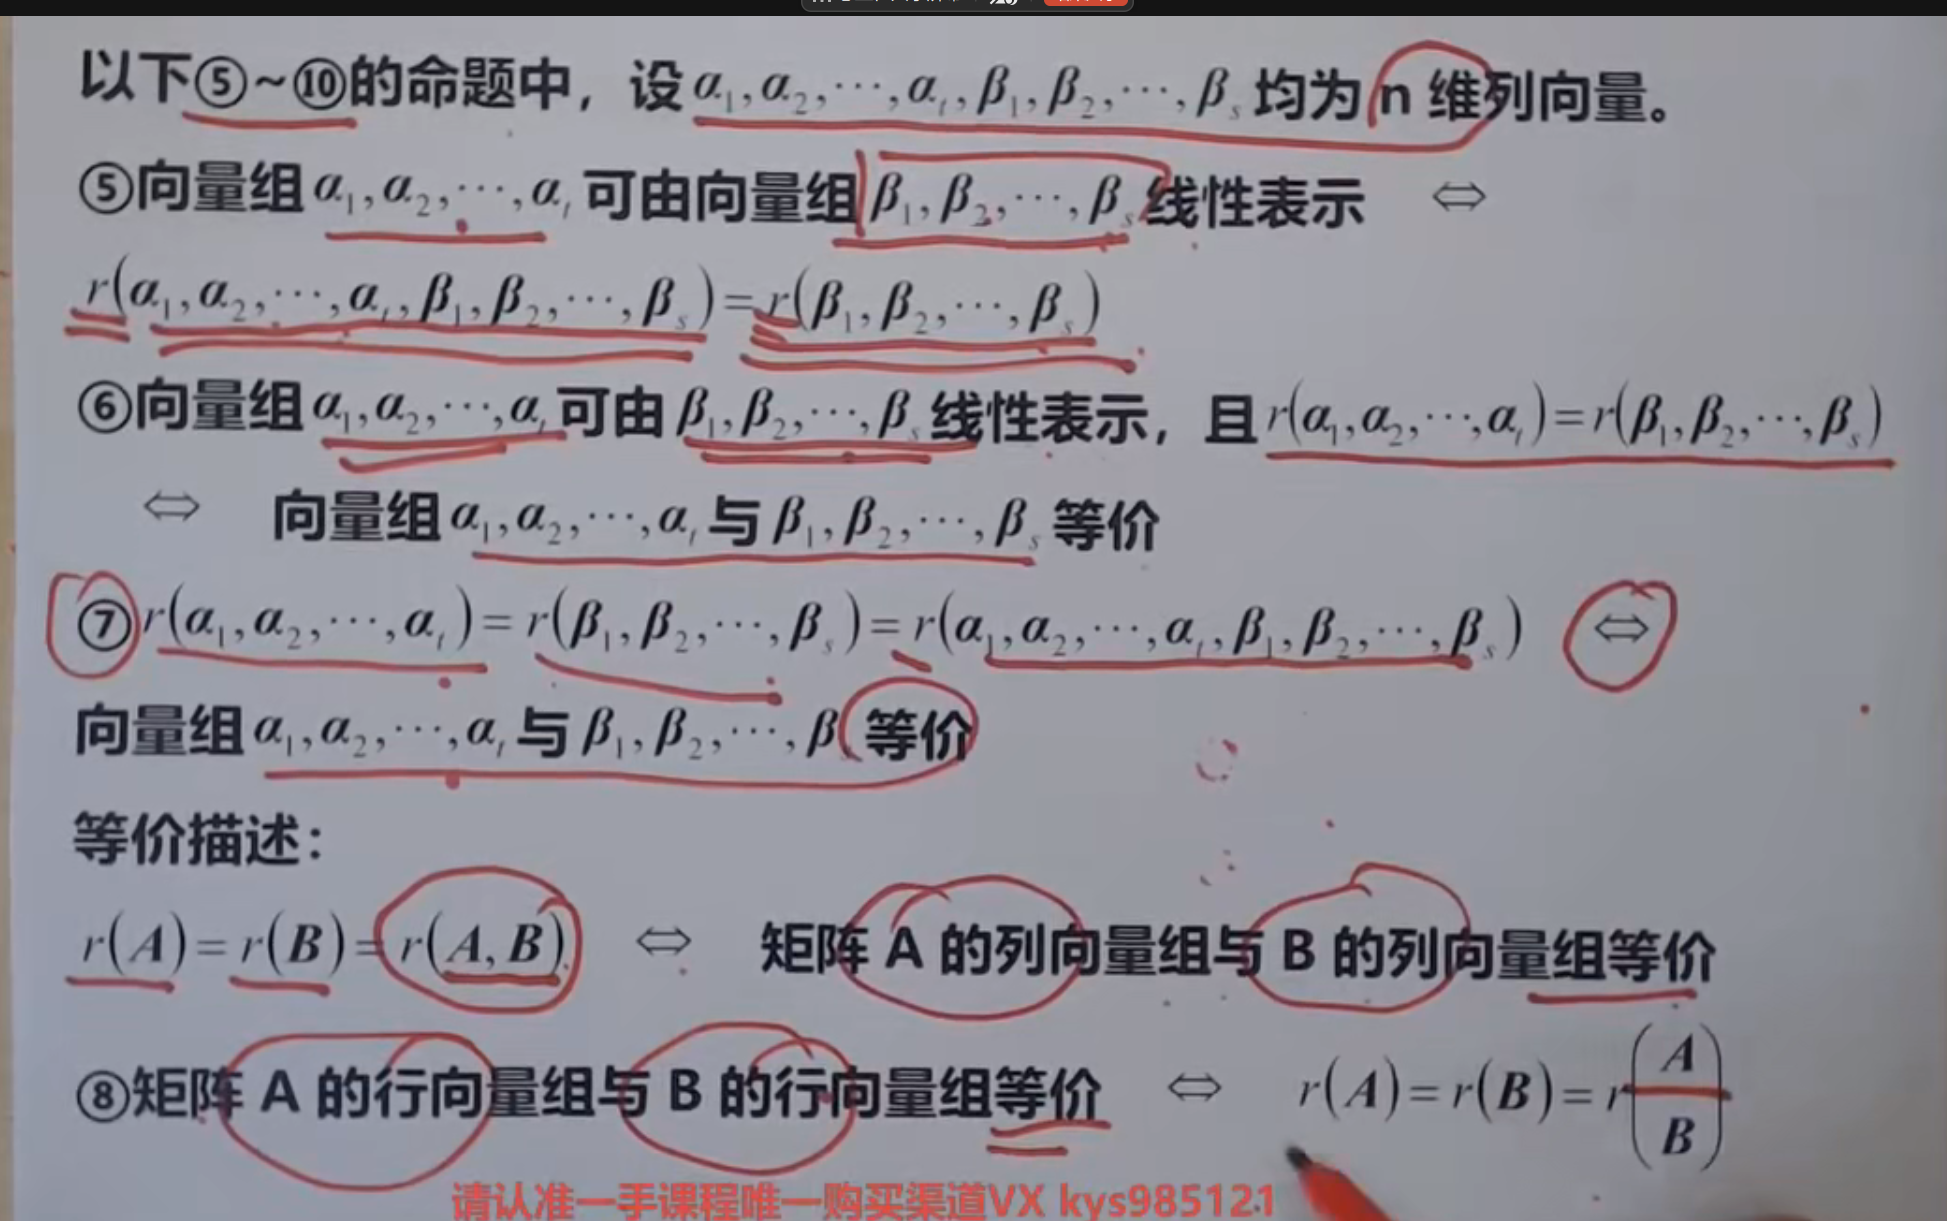 以下⑤~⑩的命题中，设 α₁,α₂,⋯,αₜ,β₁,β₂,⋯,βₛ 均为 n 维列向量。
⑤向量组 α₁,α₂,⋯,αₜ 可由向量组 β₁,β₂,⋯,βₛ 线性表示 ⇔
r(α₁,α₂,⋯,αₜ,β₁,β₂,⋯,βₛ)=r(β₁,β₂,⋯,βₛ)
⑥向量组 α₁,α₂,⋯,αₜ 可由 β₁,β₂,⋯,βₛ 线性表示，且 r(α₁,α₂,⋯,αₜ)=r(β₁,β₂,⋯,βₛ)
⇔ 向量组 α₁,α₂,⋯,αₜ 与 β₁,β₂,⋯,βₛ 等价
⑦ r(α₁,α₂,⋯,αₜ)=r(β₁,β₂,⋯,βₛ)=r(α₁,α₂,⋯,αₜ,β₁,β₂,⋯,βₛ) ⇔
向量组 α₁,α₂,⋯,αₜ 与 β₁,β₂,⋯,β 等价
等价描述：
r(A)=r(B)=r(A,B) ⇔ 矩阵 A 的列向量组与 B 的列向量组等价
⑧矩阵 A 的行向量组与 B 的行向量组等价 ⇔ r(A)=r(B)=r(A/B)
请认准一手课程唯一购买渠道VX kys985121